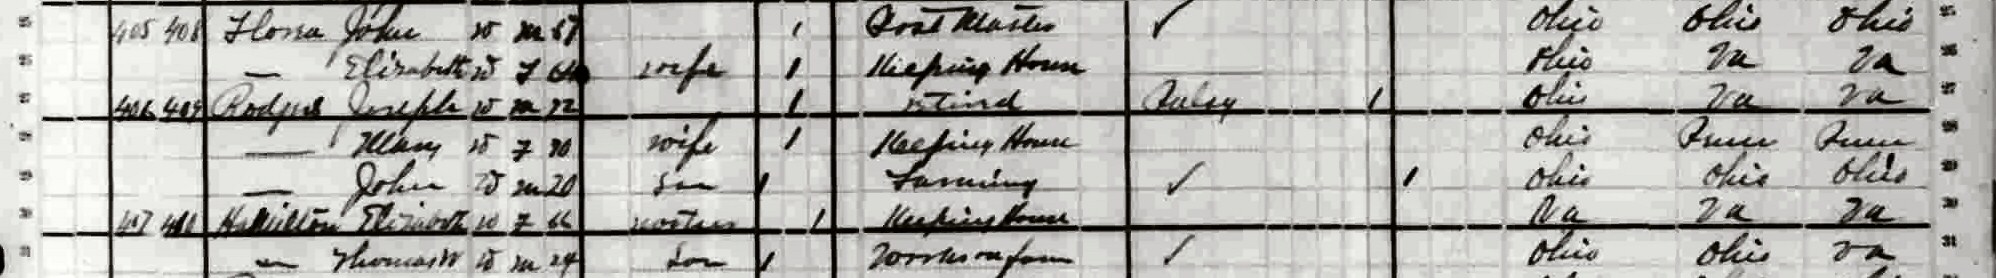 25 405 408 John W M 57 / Post Master ✓ Ohio Ohio Ohio 25
26 — Elizabeth W F wife / Keeping House Ohio Va Va 26
27 406 409 Rodgers Joseph W M 72 / retired Palsy / Ohio Va Va 27
28 — Mary W F 70 wife / Keeping House Ohio Penn Penn 28
29 — John W M 20 Son / Farming ✓ / Ohio Ohio Ohio 29
30 407 410 Hamilton Elizabeth W F 66 / Keeping House Va Va Va 30
31 — Thomas W W M 24 Son / Works on farm ✓ Ohio Ohio Va 31